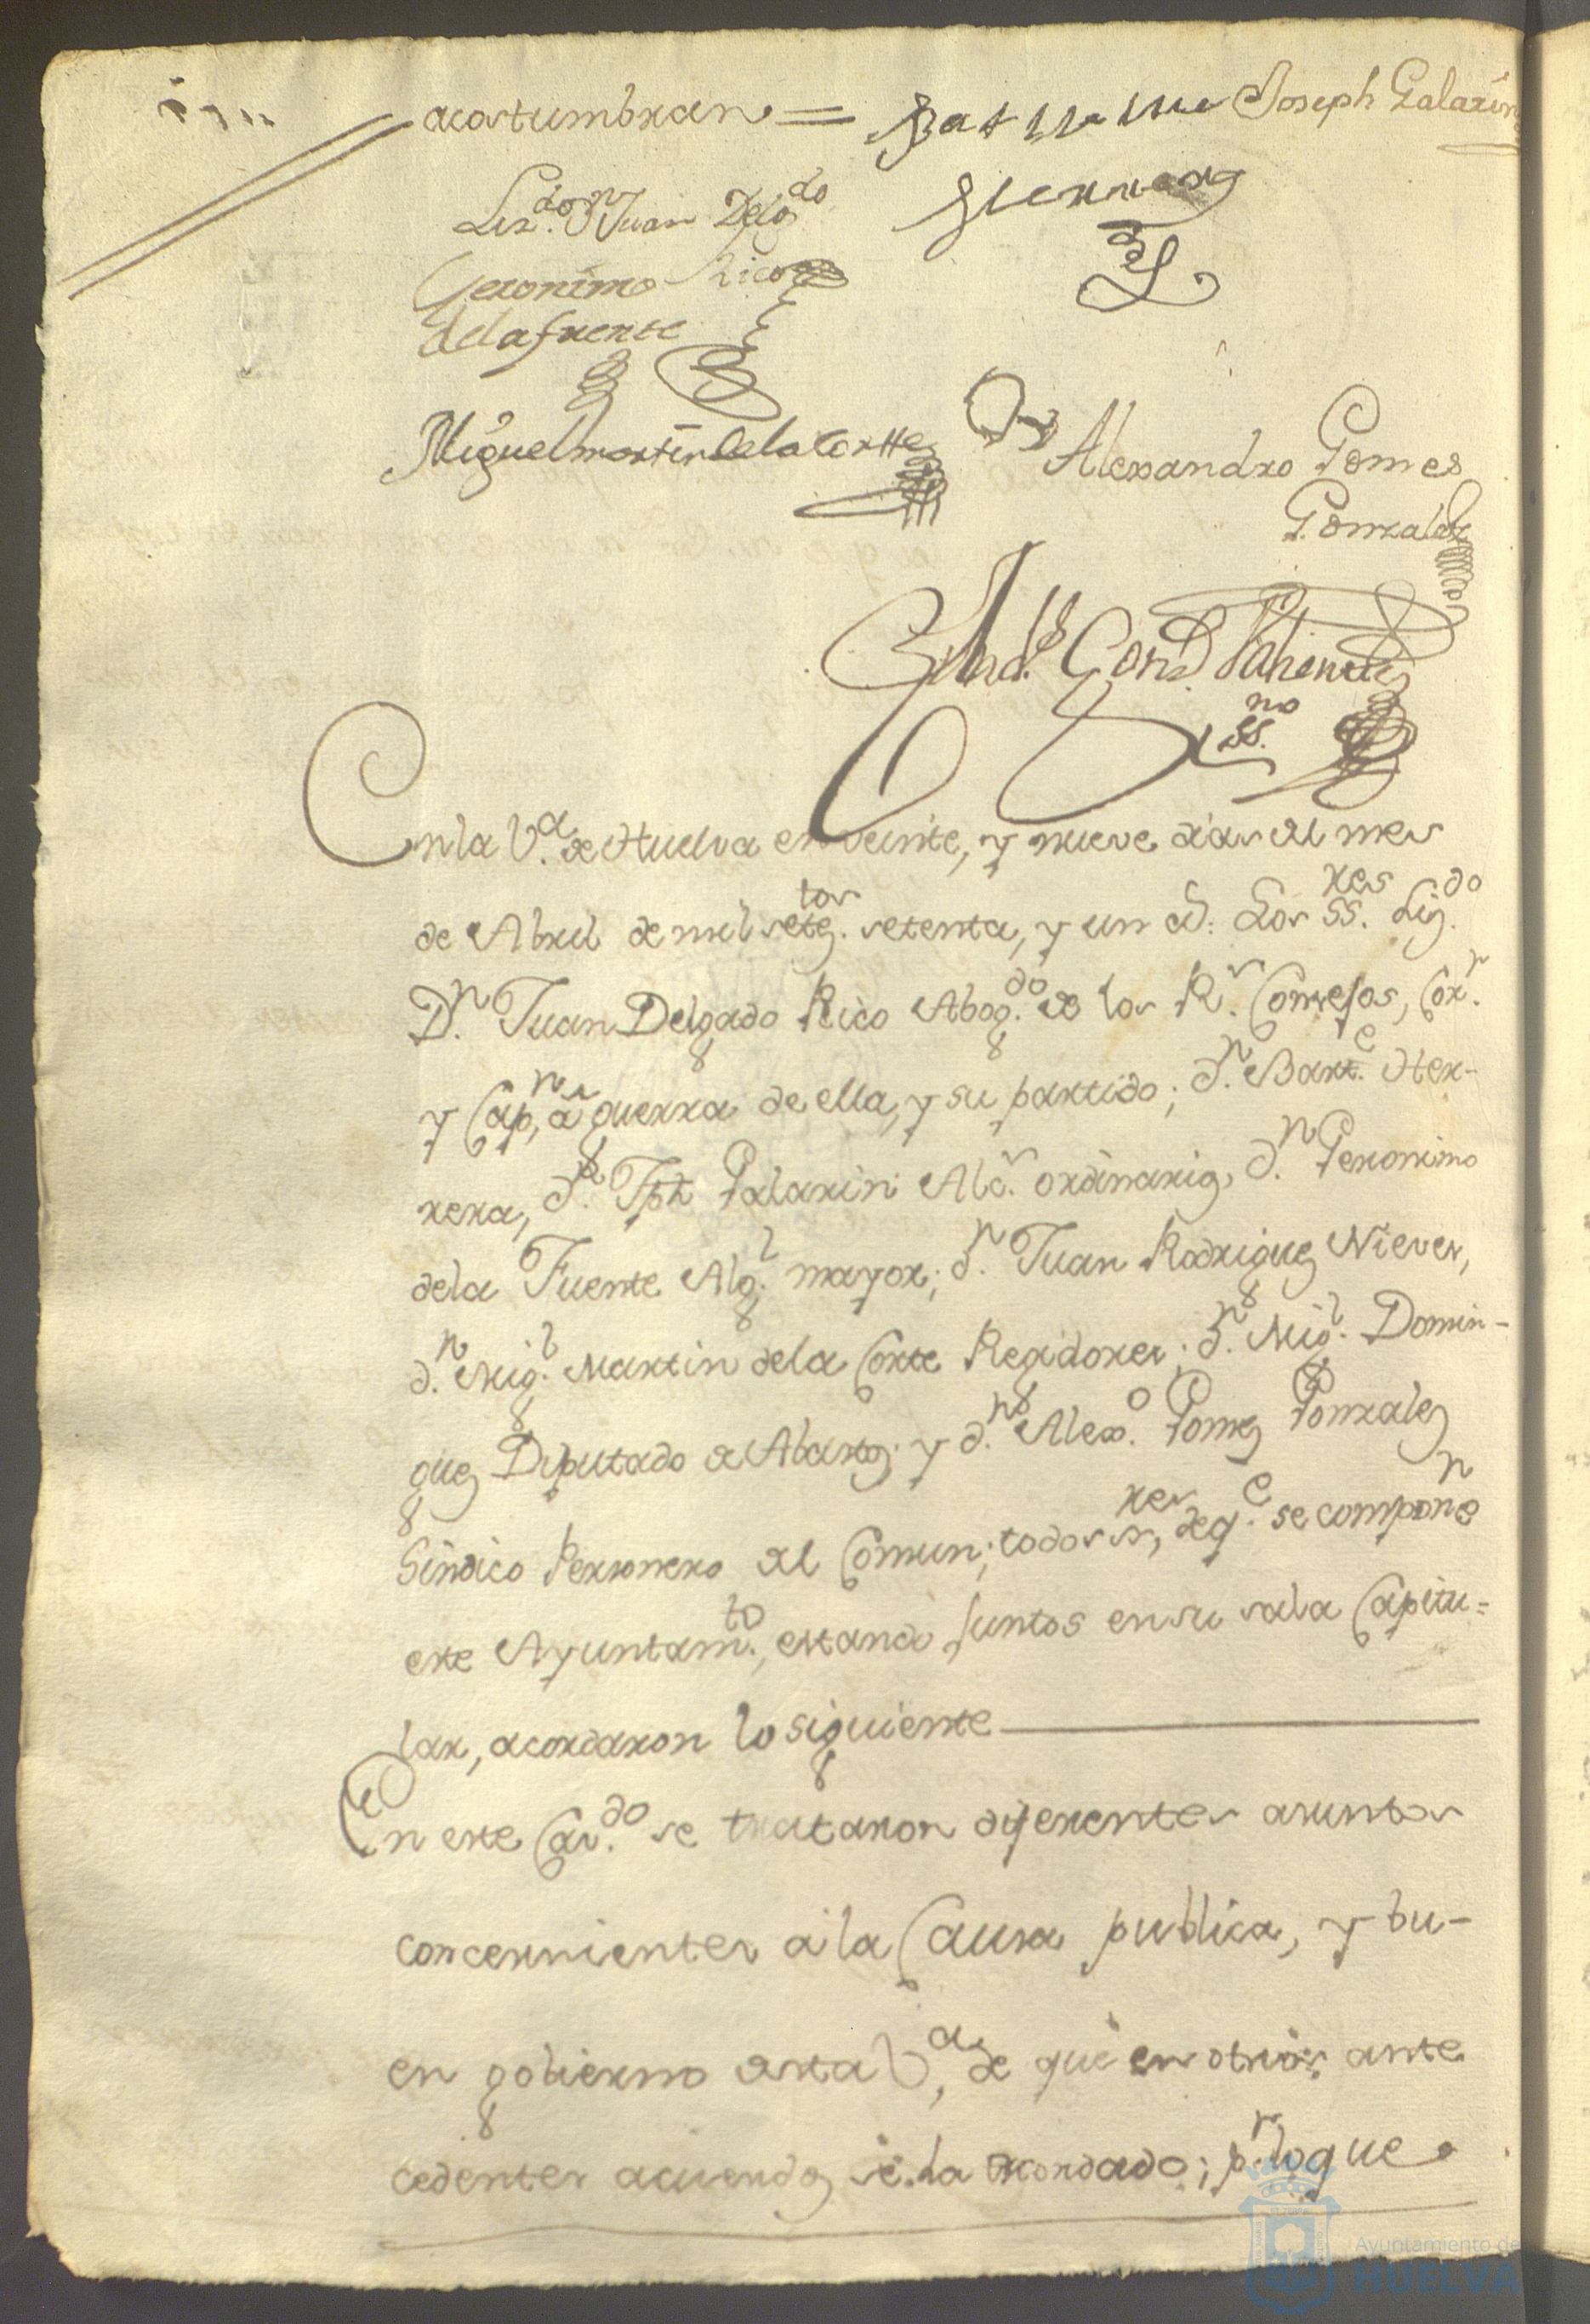 acostumbran =
Joseph Galarin
Liz.do Dn Juan Delg.do
Rico
Geronimo
delafuente
Miguel martin de la Cortte
Alexandro Gomes
Gonzalez
En la V.a de Huelva en veinte, y nueve dias del mes
de Abril de mil setez.tos setenta, y un a.s: Los SS.res Liz.do
D.n Juan Delgado Rico Abog.do de los R.s Consejos, Cor.r
y Cap.n a guerra de ella, y su partido; d.n Bart.e Her-
rera, d.n Jph Galarin Alc.s ordinarios, d.n Geronimo
dela Fuente Alg.l mayor; d.n Juan Rodriguez Nieves,
d.n Mig.l Martin dela Corte Regidores; d.n Mig.l Domin-
guez Diputado de Abastos; y d.n Alex.o Gomez Gonzalez
Sindico Personero del Comun; todos SS.res, de q.e se compone
este Ayuntam.to, estando juntos en su sala Capitu=
lar, acordaron lo siguiente
En este Cav.do se trataron diferentes asuntos
concernientes a la Causa publica, y bu-
en gobierno desta V.a, de que en otros ante
cedentes acuerdos se ha acordado; p.r loque
Ayuntamiento de
HUELVA